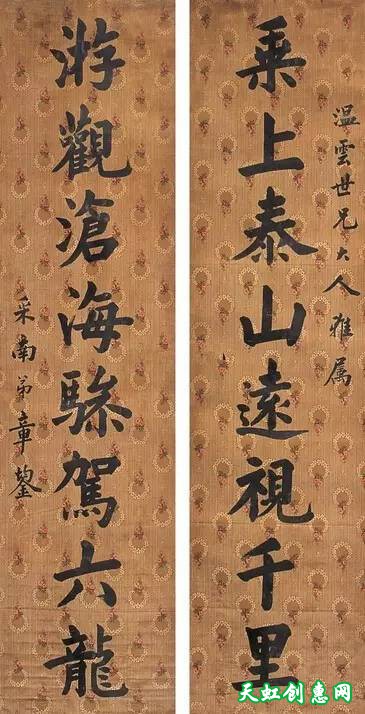 温雲世兄大人雅属
乘上泰山遠視千里
游觀滄海驂駕六龍
采南弟章鋆
天虹创惠网